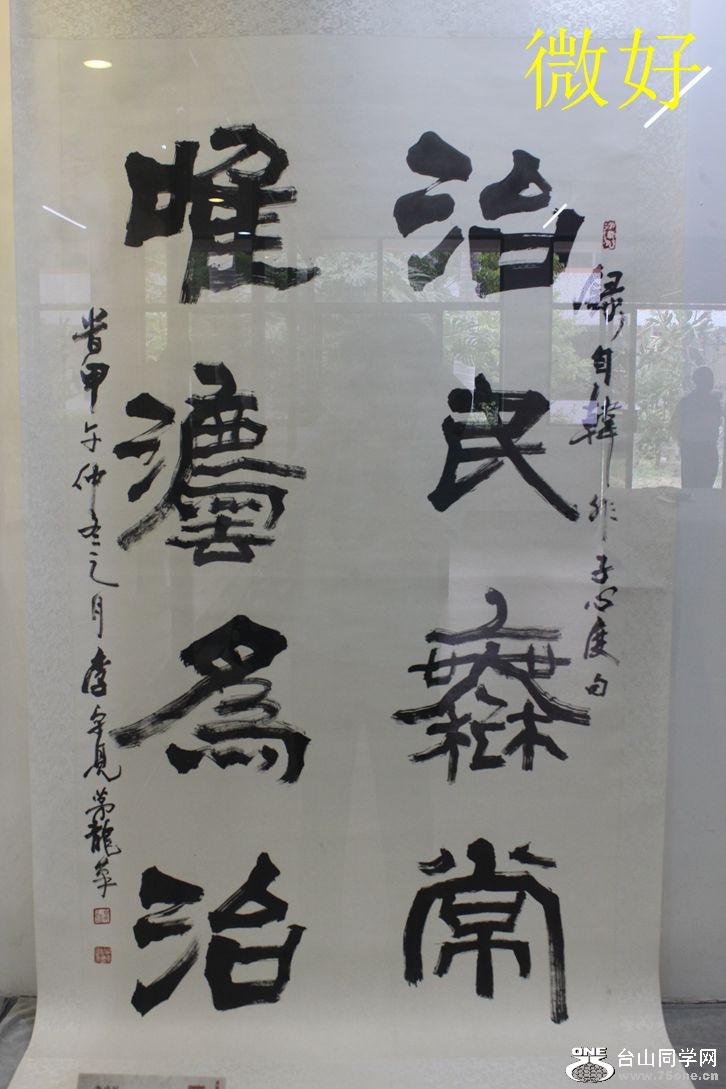 微好
錄自韓非子心度句
治民橆常
唯灋為治
旹甲午仲冬之月李 見茅龍
ONE
台山同学网
www.75one.cn